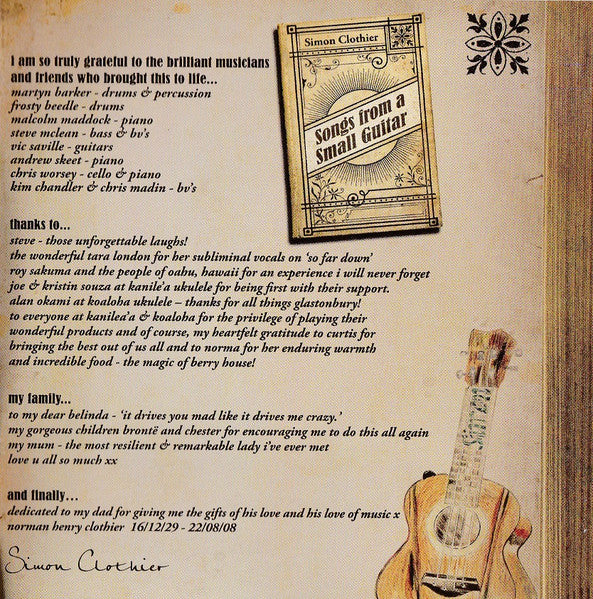 Simon Clothier
Songs from a
Small Guitar
i am so truly grateful to the brilliant musicians
and friends who brought this to life...
martyn barker - drums & percussion
frosty beedle - drums
malcolm maddock - piano
steve mclean - bass & bv's
vic saville - guitars
andrew skeet - piano
chris worsey - cello & piano
kim chandler & chris madin - bv's
thanks to...
steve - those unforgettable laughs!
the wonderful tara london for her subliminal vocals on 'so far down'
roy sakuma and the people of oahu, hawaii for an experience i will never forget
joe & kristin souza at kanile'a ukulele for being first with their support.
alan okami at koaloha ukulele – thanks for all things glastonbury!
to everyone at kanilea'a & koaloha for the privilege of playing their
wonderful products and of course, my heartfelt gratitude to curtis for
bringing the best out of us all and to norma for her enduring warmth
and incredible food - the magic of berry house!
my family...
to my dear belinda - 'it drives you mad like it drives me crazy.'
my gorgeous children brontë and chester for encouraging me to do this all again
my mum - the most resilient & remarkable lady i've ever met
love u all so much xx
and finally...
dedicated to my dad for giving me the gifts of his love and his love of music x
norman henry clothier 16/12/29 - 22/08/08
Simon Clothier